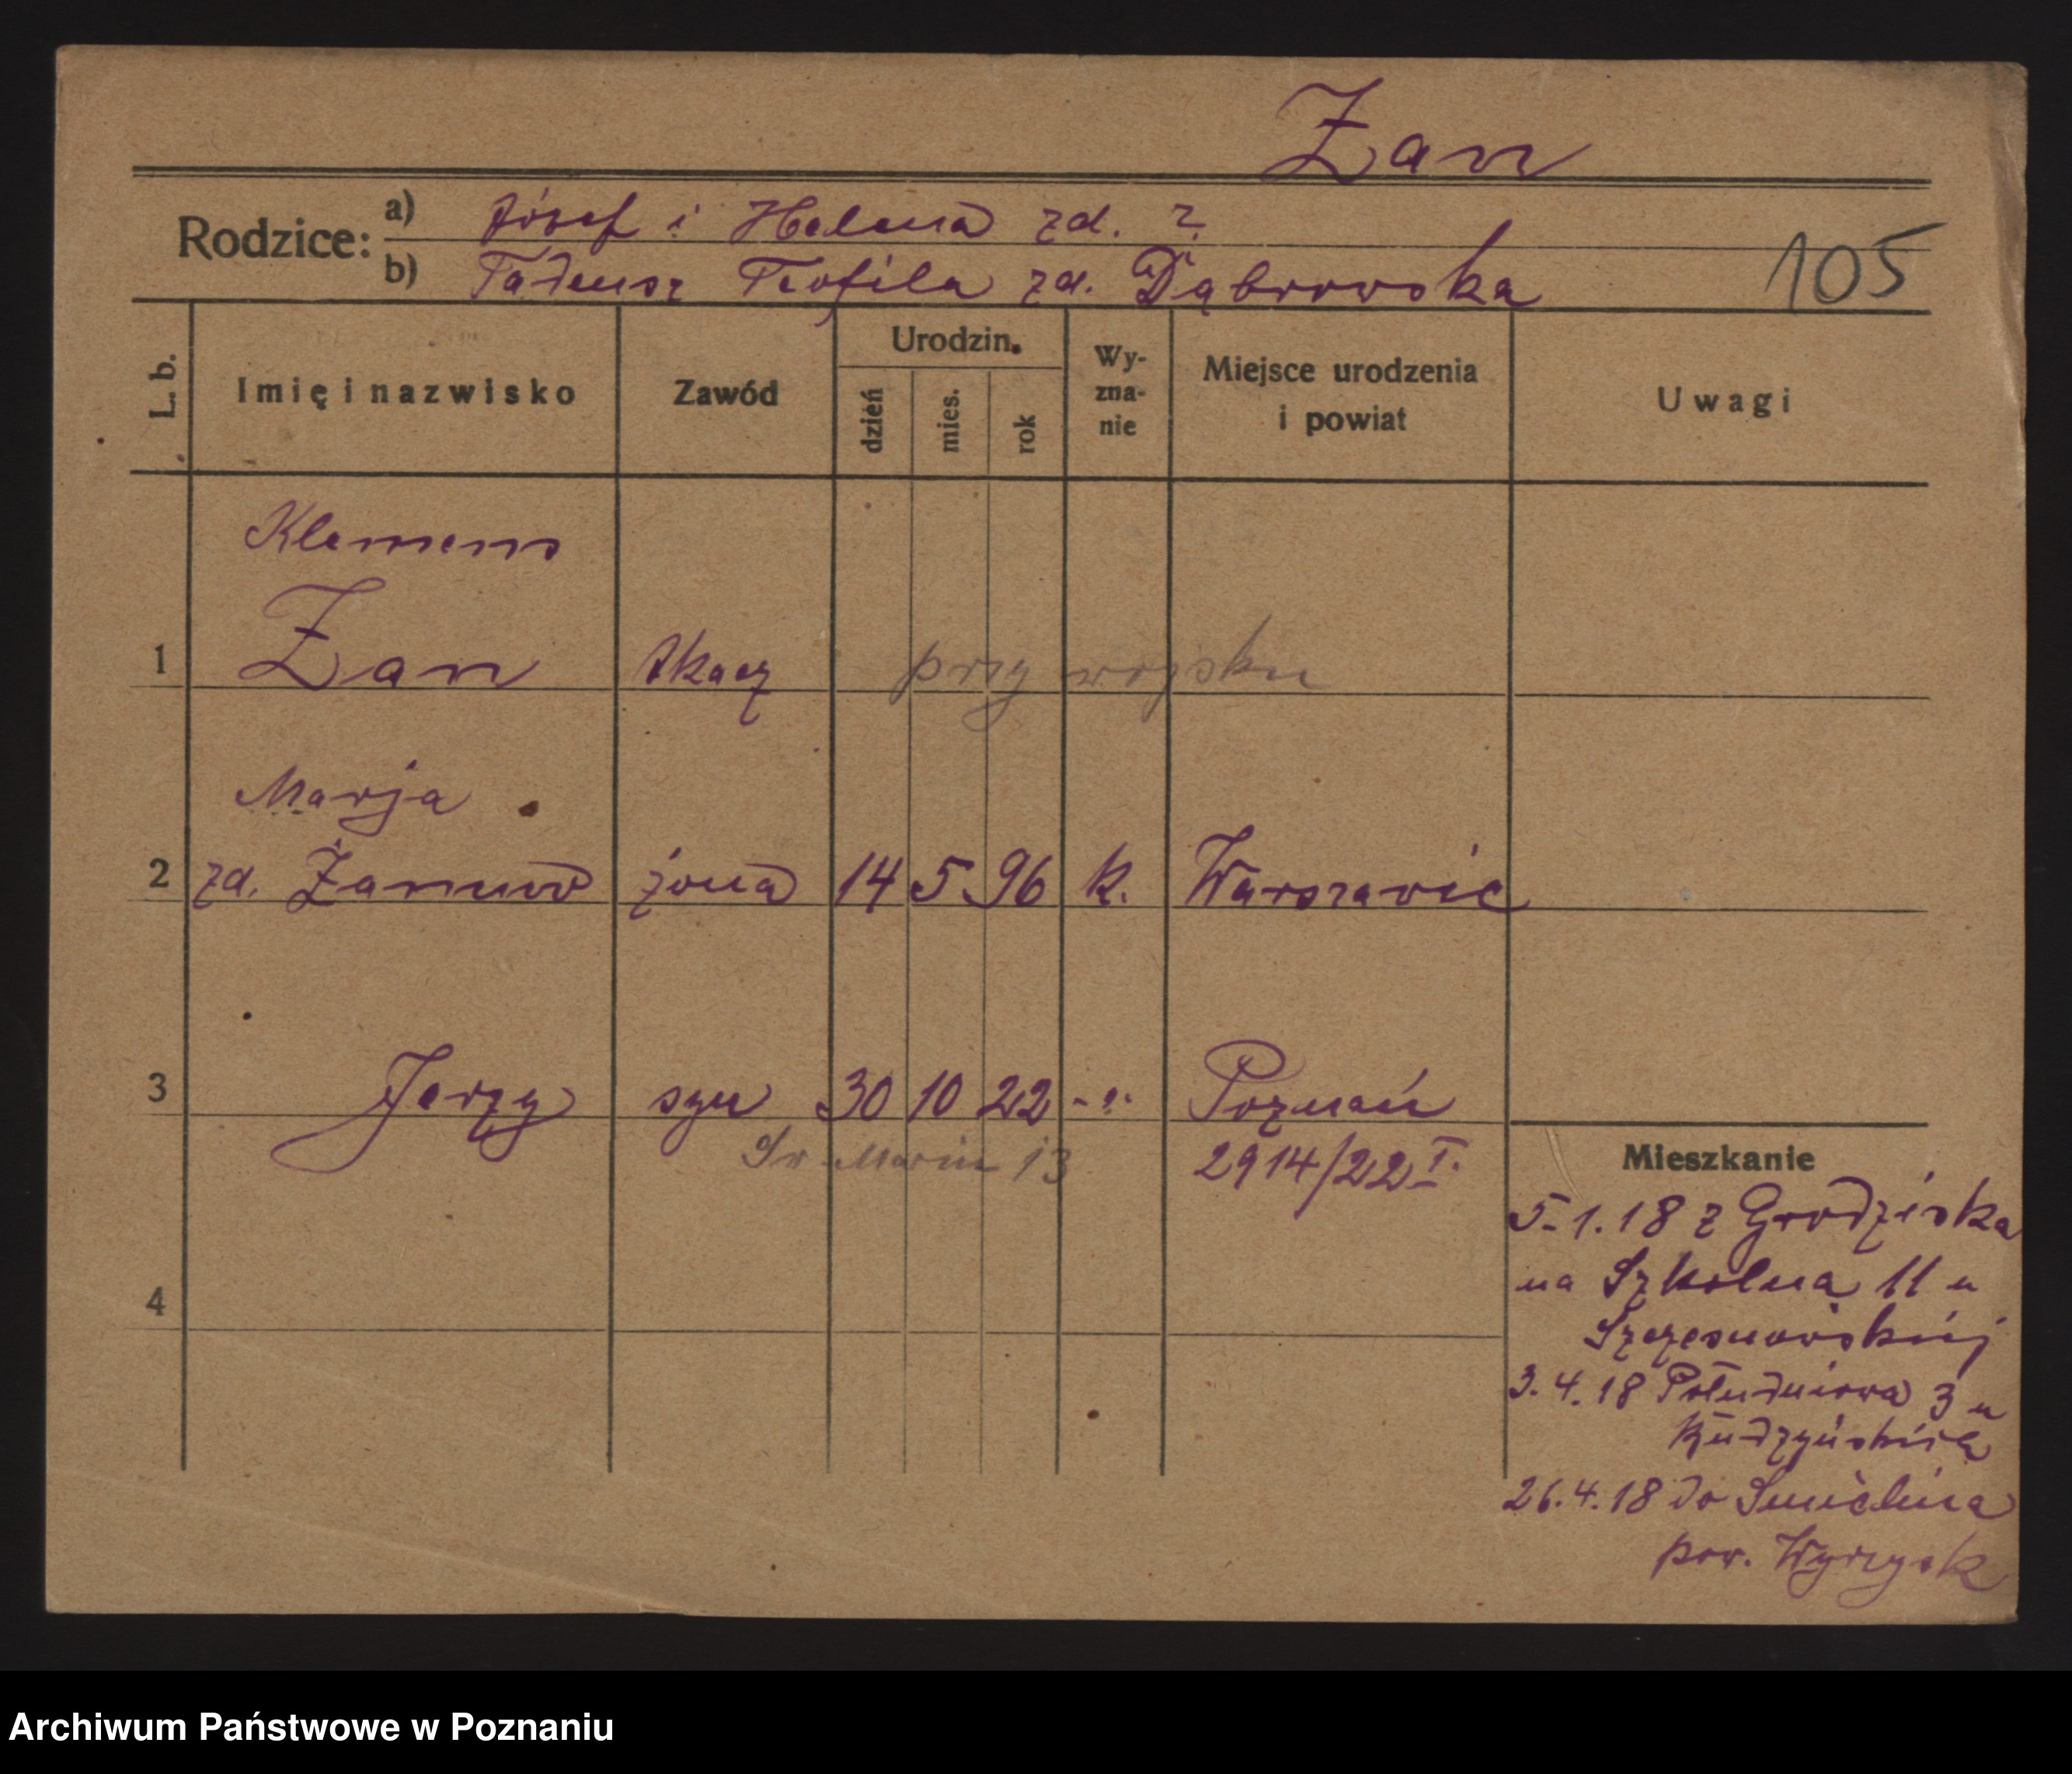 Zan
Rodzice:
a) Józef i Helena zd. ?
b) Tadeusz Teofila zd. Dąbrowska
105
L. b.
Imię i nazwisko
Zawód
Urodzin.
dzień mies. rok
Wy-
zna-
nie
Miejsce urodzenia
i powiat
Uwagi
Klemens
1 Zan tkacz przy wojsku
Marja
2 zd. żona 14 5 96 k. Warszawie
3 Jerzy syn 30 10 22 -"- Poznań
Św Marcin 13 2914/22 I.
4
Mieszkanie
5.1.18 z Grodziska
na Szkolna 11 u
3.4.18 Południowa 3 u
26.4.18 do
pow. Wyrzysk
Archiwum Państwowe w Poznaniu